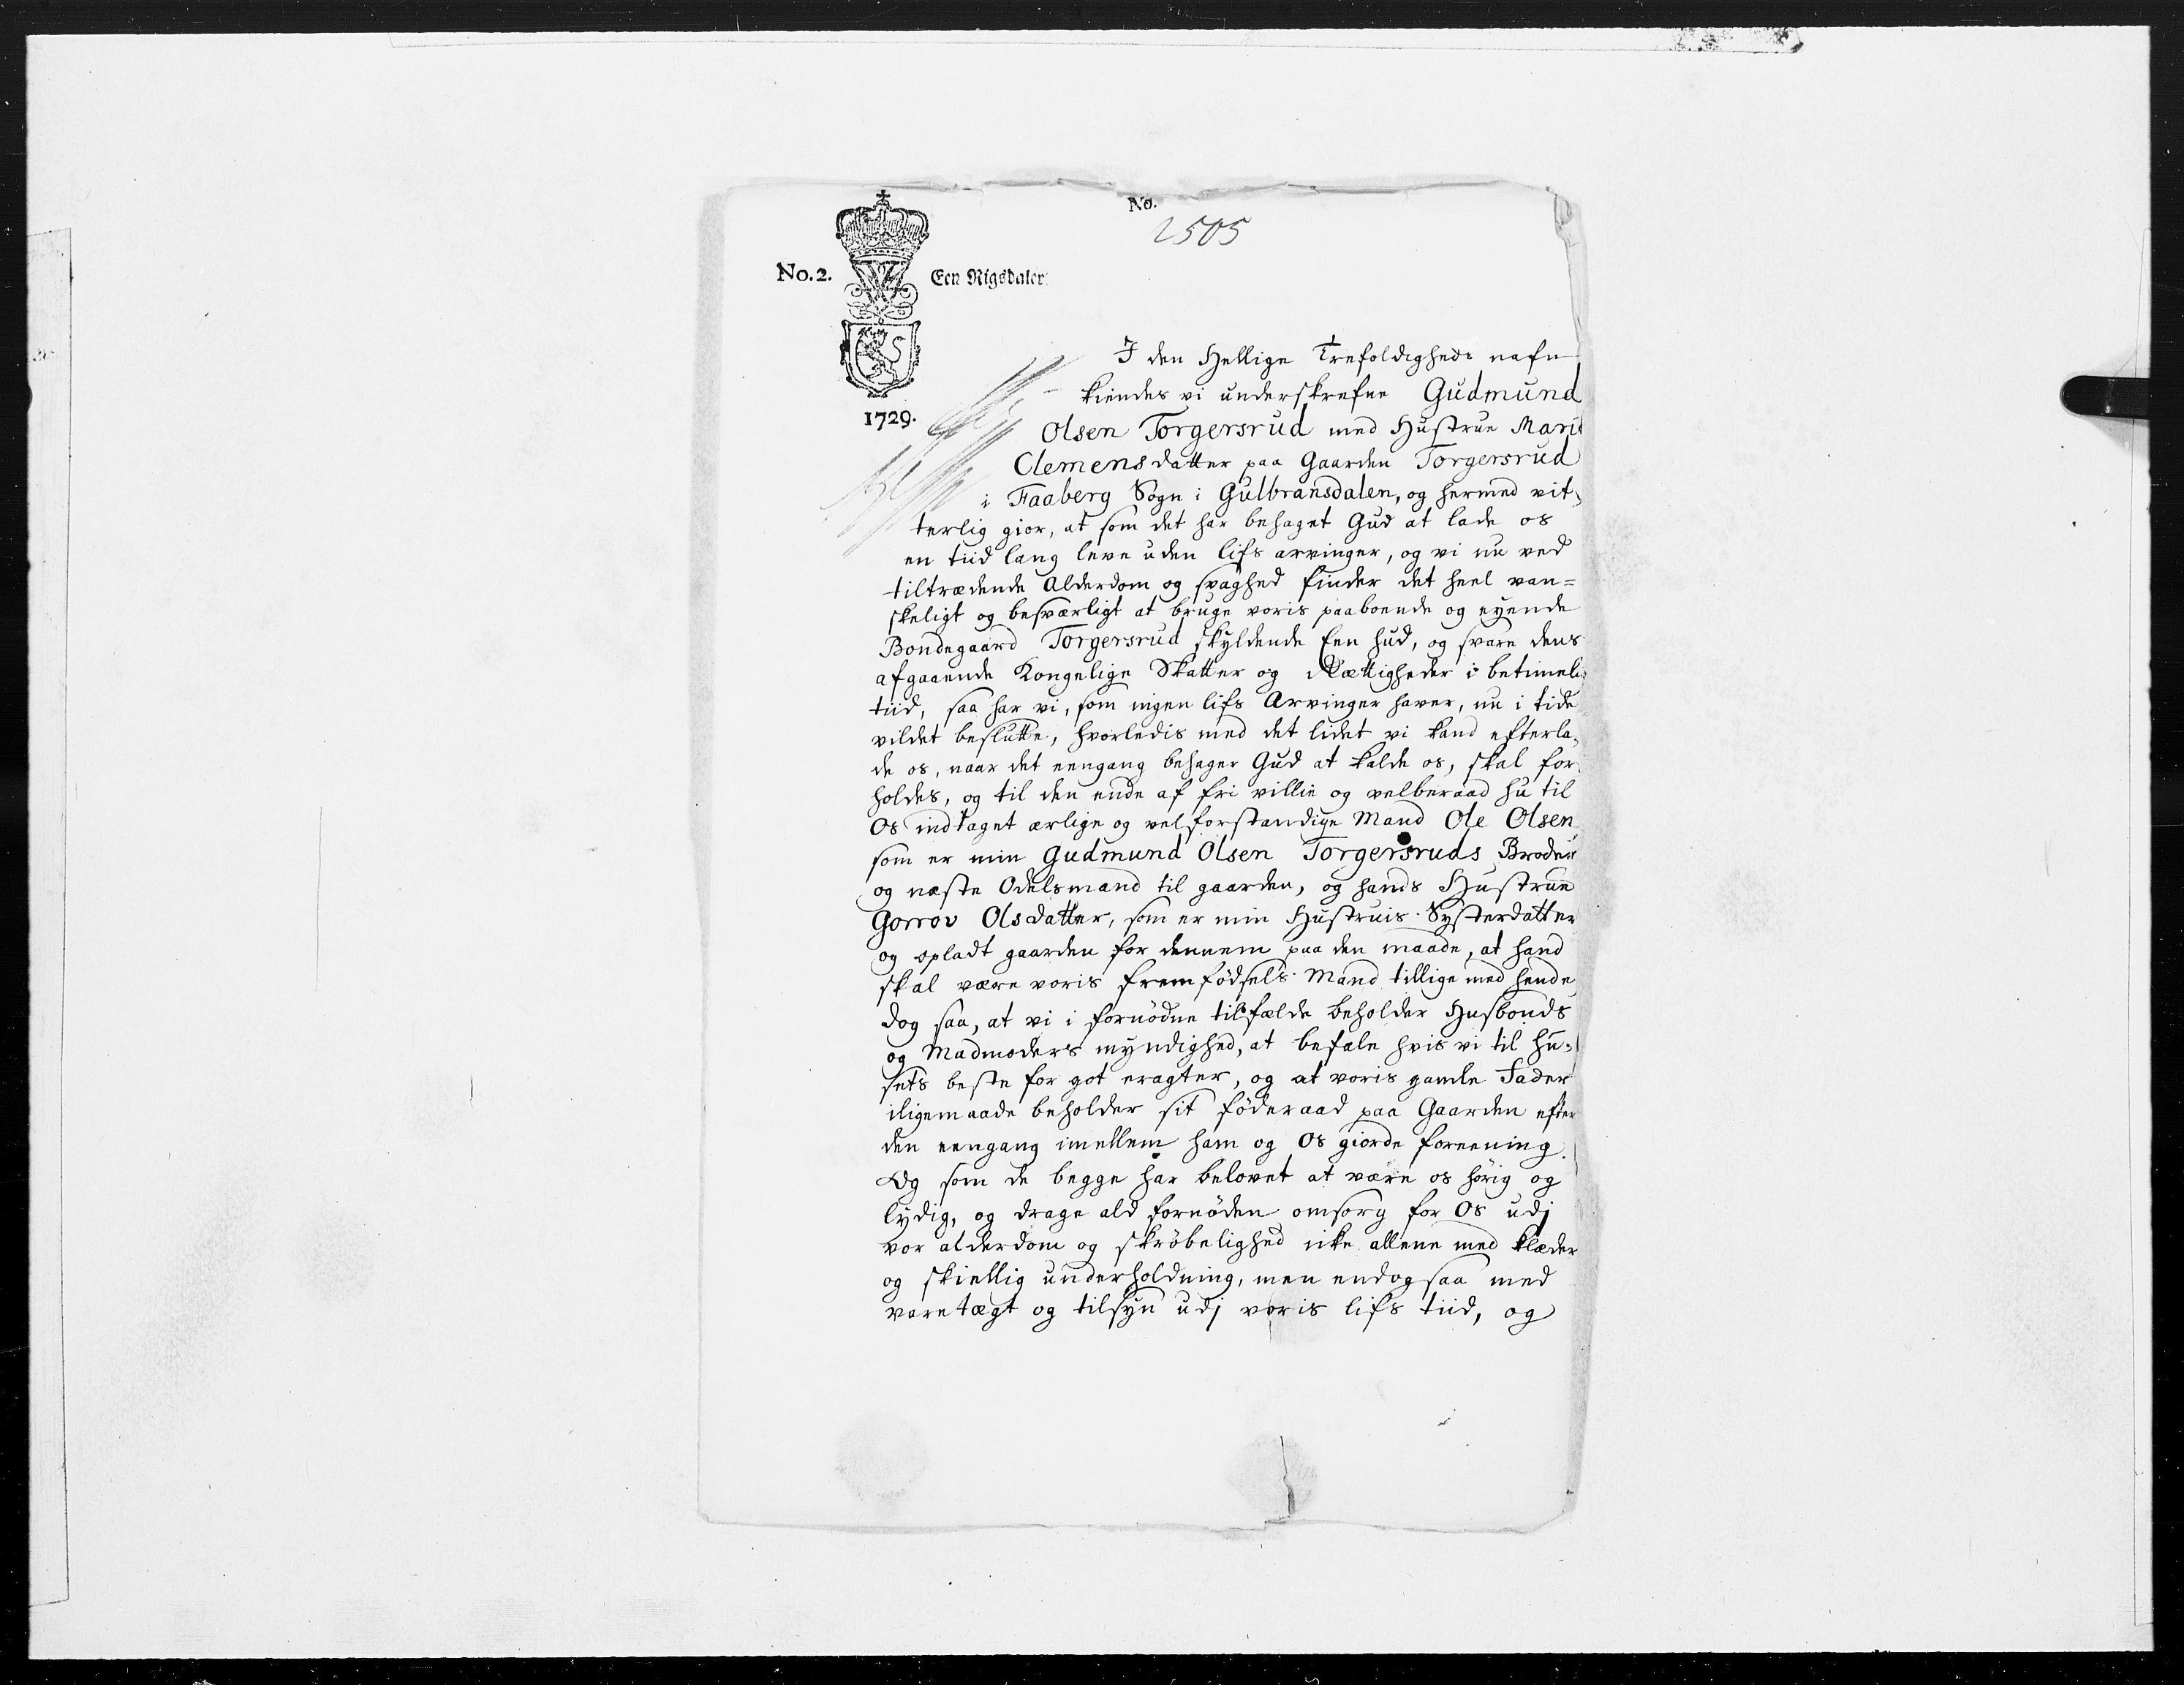 No.
2505
No. 2.
Een Rigsdaler
1729.
I den Hellige Trefoldigheds nafn
kiendes vi underskrefne Gudmund
Olsen Torgersrud med Hustrue Marit
Clemensdatter paa Gaarden Torgersrud
i Faaberg Sogn i Gulbransdalen, og hermed vit,
terlig gior, at som det har behaget Gud at lade os
en tiid lang leve uden lifs arvinger, og vi nu ved
tiltrædende Alderdom og svaghed finder det heel van=
skeligt og besværligt at bruge voris paaboende og eyende
Bondegaard Torgersrud skyldende Een hud, og svare dens
afgaaende Kongelige Skatter og Rættigheder i betimelig
tiid, saa har vi, som ingen lifs Arvinger haver, nu i tide
vildet beslutte, hvorledis med det lidet vi kand efterla,
de os, naar det eengang behager Gud at kalde os, skal for,
holdes, og til den ende af fri villie og velberaad hu til
Os indtaget ærlige og velforstandige Mand Ole Olsen
som er min Gudmund Olsen Torgersruds Broder
og næste Odelsmand til gaarden, og hands Hustrue
Gorrov Olsdatter, som er min Hustruis Systerdatter
og opladt gaarden for dennem paa den maade, at hand
skal være voris fremfødsels Mand tillige med hende
dog saa, at vi i fornødne tilfælde beholder Husbonds
og Madmoders myndighed, at befale hvis vi til hu,
sets beste for got eragter, og at voris gamle Fader
iligemaade beholder sit føderaad paa Gaarden efter
den eengang imellem ham og Os giorde foreening.
Og som de begge har belovet at være os hørig og
lydig, og drage ald fornøden omsorg for Os udj
vor alderdom og skrøbelighed icke allene med klæder
og skiellig underholdning, men endogsaa med
varetægt og tilsyn udj voris lifs tiid, og